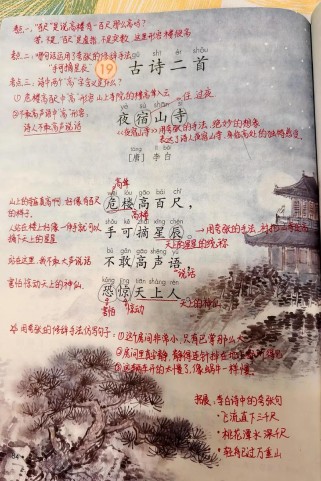 考点一，"百尺"是说高楼有一百尺那么高吗？
答：不是，"百尺"是虚指，不是实数，这里形容楼很高
考点二：哪句话运用了夸张的修辞手法
"手可摘星辰"
gǔ shī èr shǒu
19 古诗二首
考点三：诗中两个"高"字含义是什么？
①危楼高百尺中"高"形容山上寺院的高楼耸入云
住，过夜
②不敢高声语中"高"形容：
诗人不敢高声说话
yè sù shān sì
夜宿山寺
《夜宿山寺》用夸张的手法，绝妙的想象
表达了诗人夜宿山寺，身临高处的独特感受。
táng lǐ bái
[唐] 李白
高耸
wēi lóu gāo bǎi chǐ
危楼高百尺，
高楼
山上的寺庙真高啊，好像有百尺
的样子，
shǒu kě zhāi xīng chén
手可摘星辰。
用夸张的手法
人站在楼上好像一伸手就可以
摘下天上的星星
天上的星星的统称
bù gǎn gāo shēng yǔ
不敢高声语，
说话
站在这里，我不敢大声说话
kǒng jīng tiān shàng rén
恐惊天上人。
天上的神仙
害怕惊动天上的神仙。
害怕 惊动
用夸张的修辞手法仿写句子：①这个房间非常小，只有巴掌那么大
②房间里真安静，静得连针掉在地上都听得见
③这辆车开的太慢了，像蜗牛一样慢
拓展：李白诗中的夸张句
·飞流直下三千尺
·桃花潭水深千尺
·轻舟已过万重山